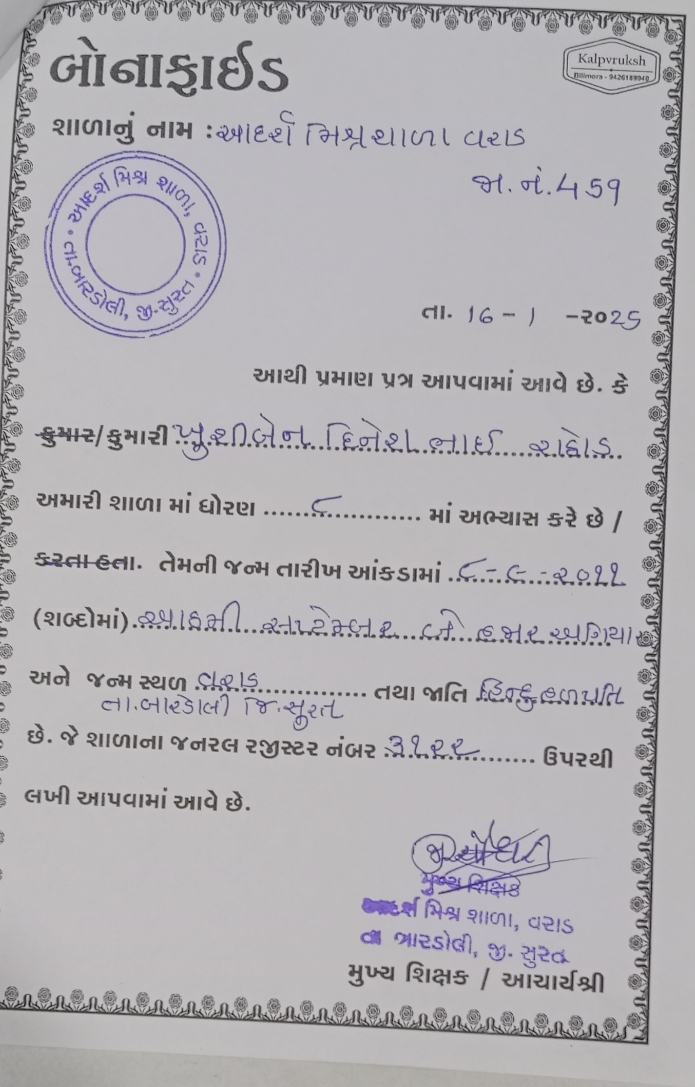 Kalpvruksh
Bilimora - 9426189940
બોનાફાઈડ
શાળાનું નામ : આદર્શ મિશ્રશાળા વરાડ
જા.નં.459
આદર્શ મિશ્ર શાળા, વરાડ • તા.બારડોલી, જી.સુરત •
તા. 16 - 1 -૨૦25
આથી પ્રમાણ પત્ર આપવામાં આવે છે. કે
કુમાર/કુમારી ખુશીબેન દિનેશભાઈ રાઠોડ
અમારી શાળા માં ધોરણ ૮ માં અભ્યાસ કરે છે /
કરતા હતા. તેમની જન્મ તારીખ આંકડામાં ૮-૯-૨૦૧૧
(શબ્દોમાં) આઠમી સપ્ટેમ્બર બે હજાર અગિયાર
અને જન્મ સ્થળ વરાડ તથા જાતિ હિન્દુ હળપતિ
તા.બારડોલી જિ.સુરત
છે. જે શાળાના જનરલ રજીસ્ટર નંબર ૩૧૨૨ ઉપરથી
લખી આપવામાં આવે છે.
મુખ્ય શિક્ષક
આદર્શ મિશ્ર શાળા, વરાડ
તા બારડોલી, જી. સુરત
મુખ્ય શિક્ષક / આચાર્યશ્રી